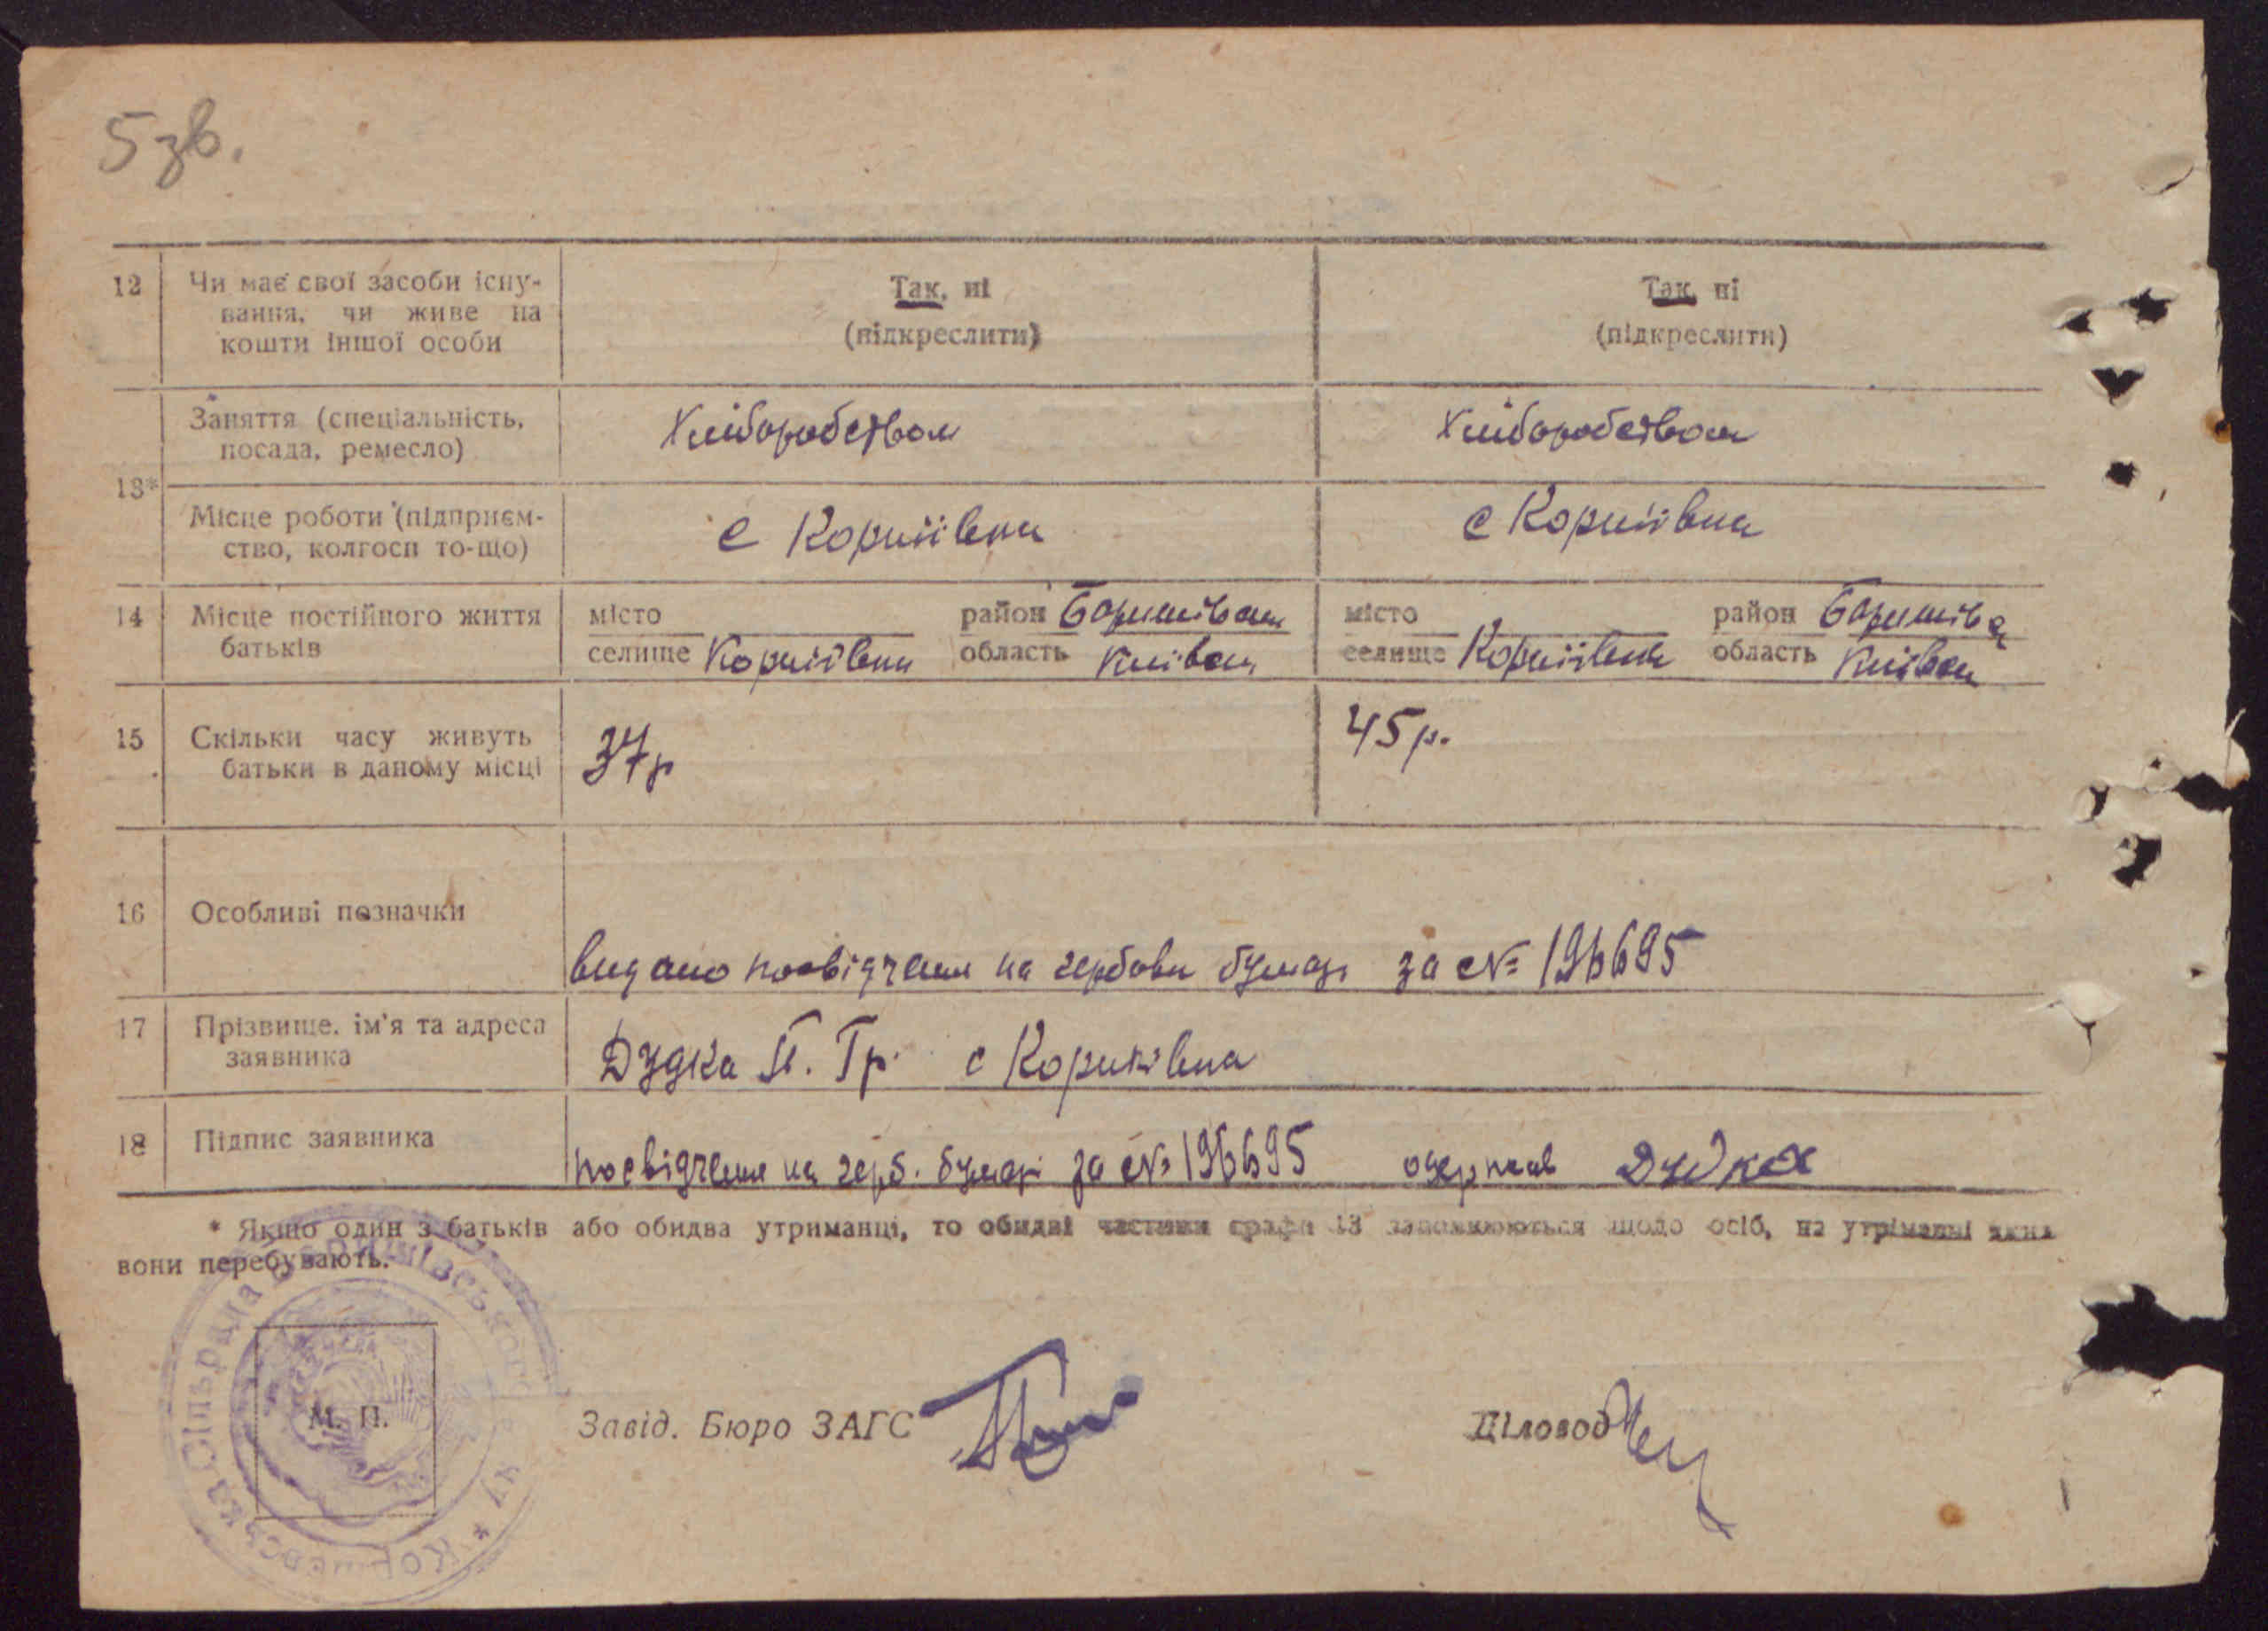 5 зв.
12 Чи має свої засоби існу-
вання, чи живе на
кошти іншої особи
Так, ні
(підкреслити)
Так, ні
(підкреслити)
13*
Заняття (спеціальність,
посада, ремесло)
Хліборобством
Хліборобством
Місце роботи (підприєм-
ство, колгосп то-що)
с Коржіївки
с Коржіївки
14 Місце постійного життя
батьків
місто
район
селище Коржіївки область Київськ
місто
район
селище Коржіївки область Київськ
15 Скільки часу живуть
батьки в даному місці
37р
45р.
16 Особливі позначки
видано посвідчення на гербови бумазі за № 196695
17 Прізвище, ім'я та адреса
заявника
Дудка П. Гр. с Коржіївка
18 Підпис заявника
посвідчення на герб. бумазі за № 196695 одержав Дудка
* Якщо один з батьків або обидва утриманці, то обидві частини графи 13 заповнюються щодо осіб, на утриманні яких
вони перебувають.
М. П.
Завід. Бюро ЗАГС
Діловод